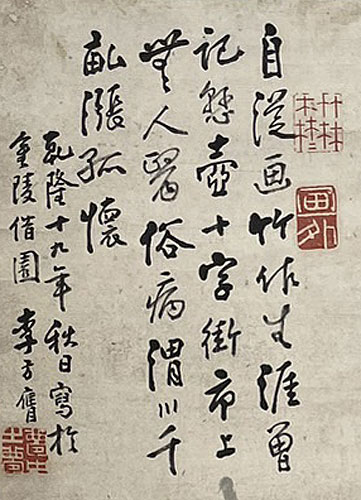 自從画竹作生涯曾
記懸壺十字街市上
無人醫俗病渭川千
畝漲孤懷
乾隆十九年秋日寫於
金陵借園 李方膺